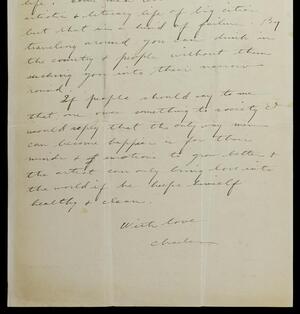 life. Some men
artistic & literary life of big cities
but that is a kind of failure. By
traveling around you can drink in
the country & people without them
sucking you into their narrow
round.
If people should say to me
that one owes something to society I
would reply that the only way men
can become happier is for their
minds & emotions to grow better &
the artist can only bring love into
the world if he keeps himself
healthy & clean.
With love
Charles